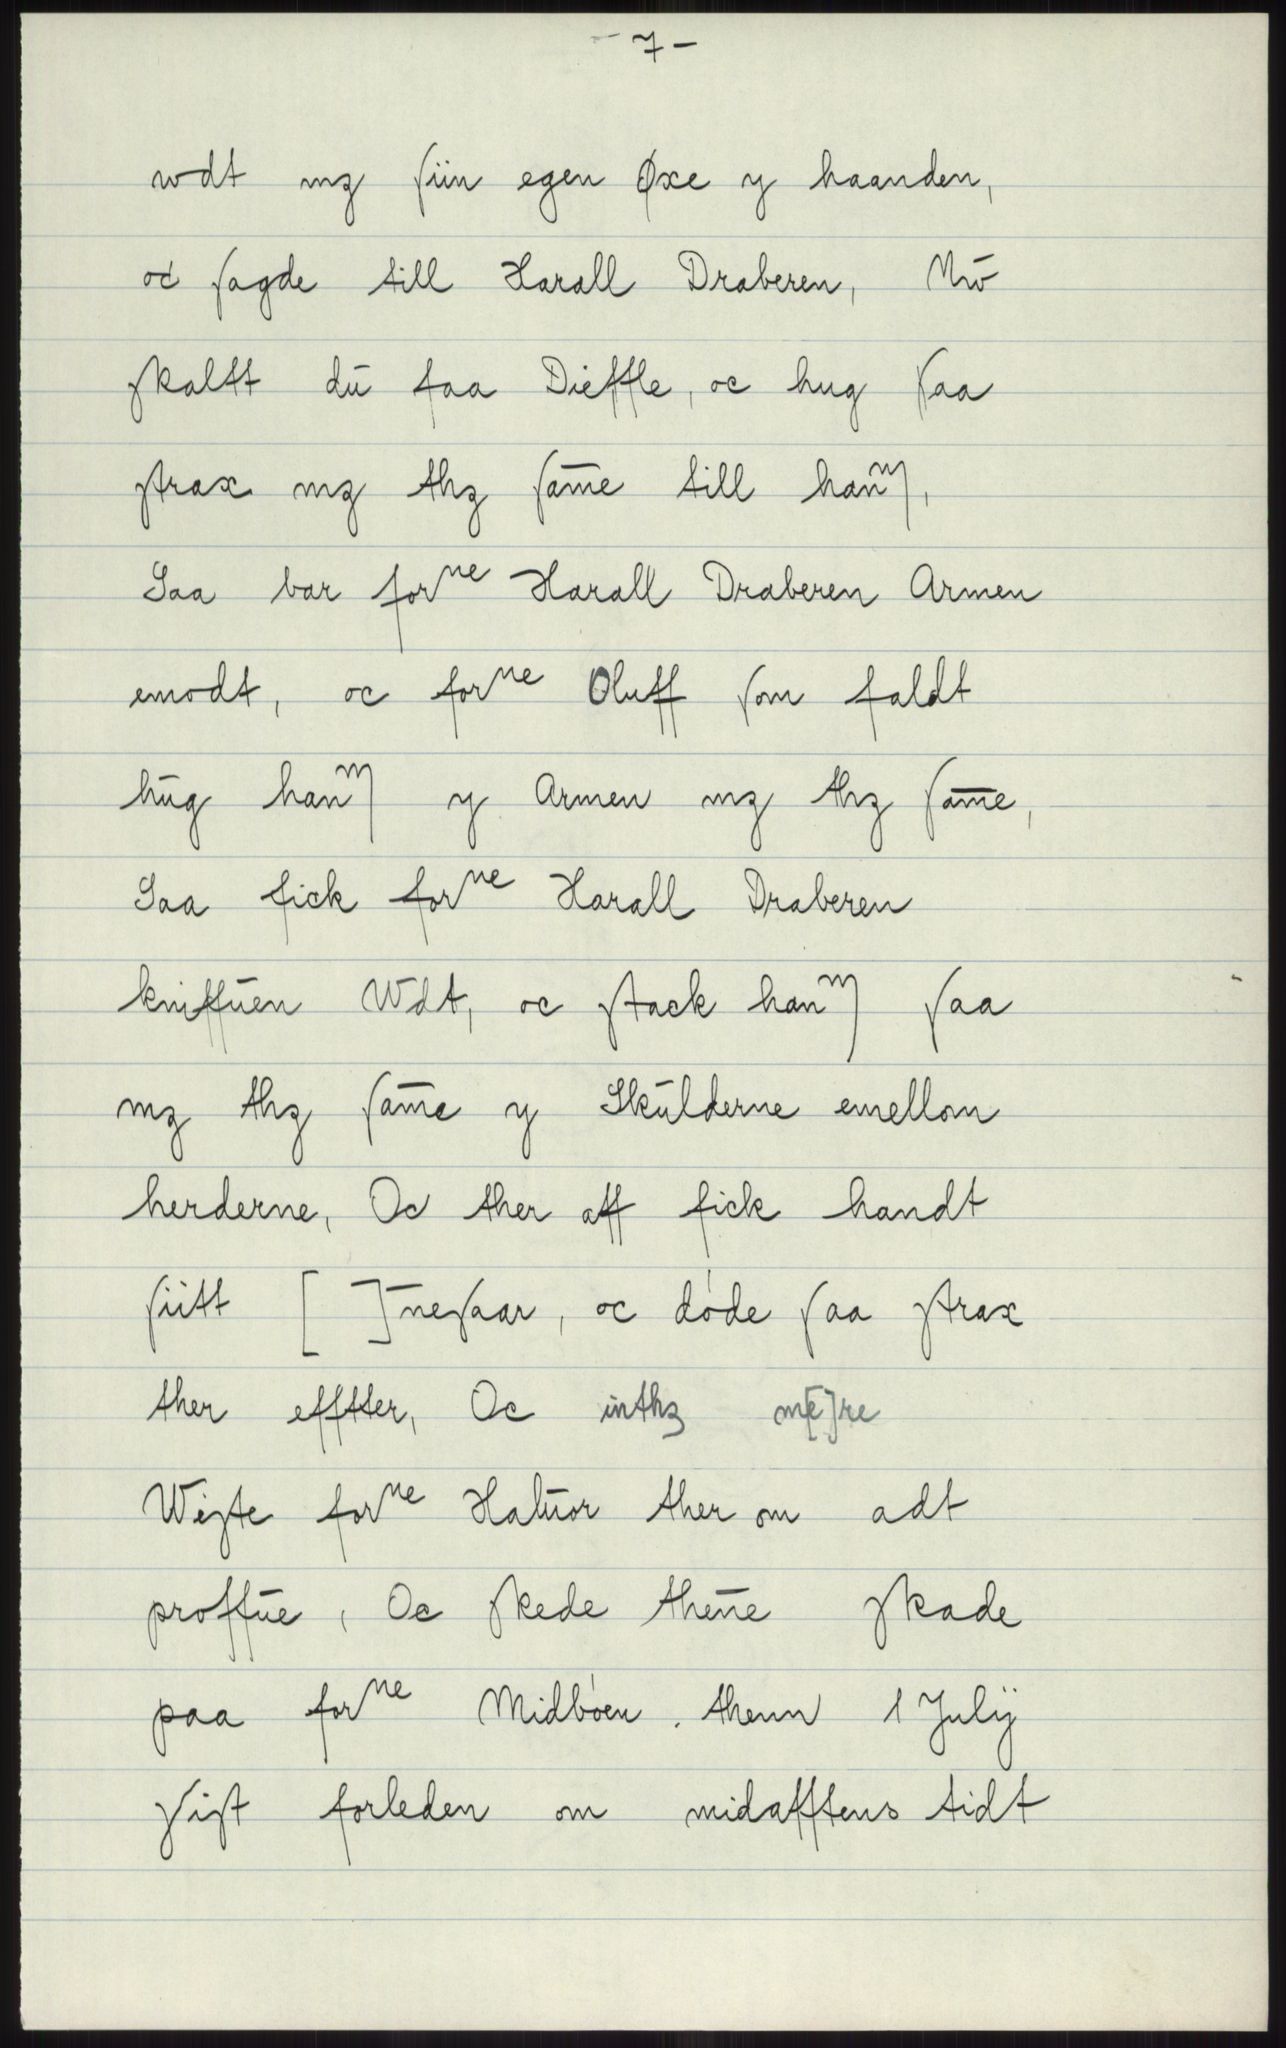 - 7 -
wdt mz siin egen Øxe y haanden,
oc sagde till Harall Draberen, Nw̄
skaltt dū faa Dieffle, oc hug saa
strax mz thz sam̄e till hanᵐ,
Saa bar forⁿᵉ Harall Draberen Armen
emodt, oc forⁿᵉ Oluff som faldt
hūg hanᵐ y Armen mz thz sam̄e,
Saa fick forⁿᵉ Harall Draberen
kniffūen Wdt, oc stack hanᵐ saa
mz thz sam̄e y Skūlderne emellom
herderne, Oc ther aff fick handt
siitt [ ]nesaar, oc døde saa strax
ther efftter, Oc inthz me[]re
Wiste forⁿᵉ Halūor ther om adt
proffūe, Oc skede then̄e skade
paa forⁿᵉ Midbøen. thenn 1 Julij
sist forleden om midafftens tidt